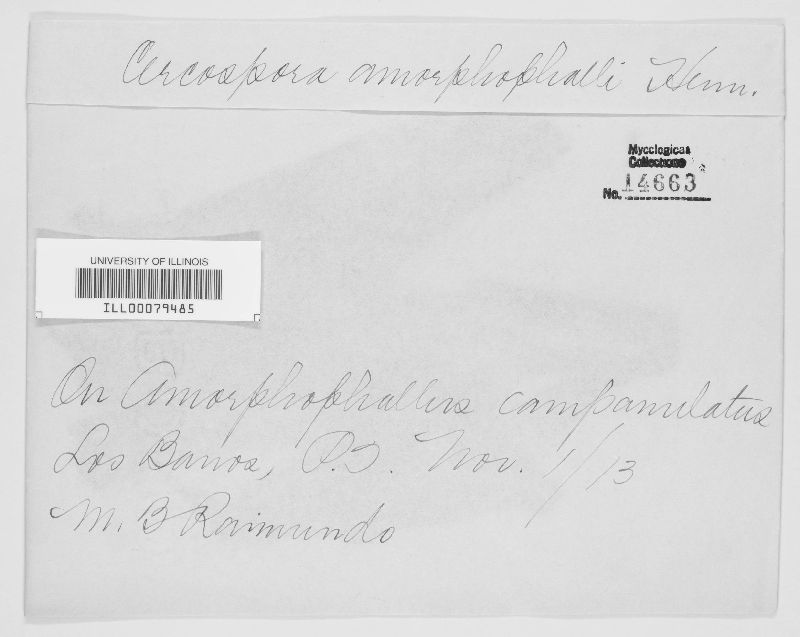 Cercospora amorphophalli Henn.
Mycological
Collections
No. 14663
UNIVERSITY OF ILLINOIS
ILL00079485
On Amorphophallus campanulatus
Los Banos, P.I. Nov. 1/13
M. B Raimundo